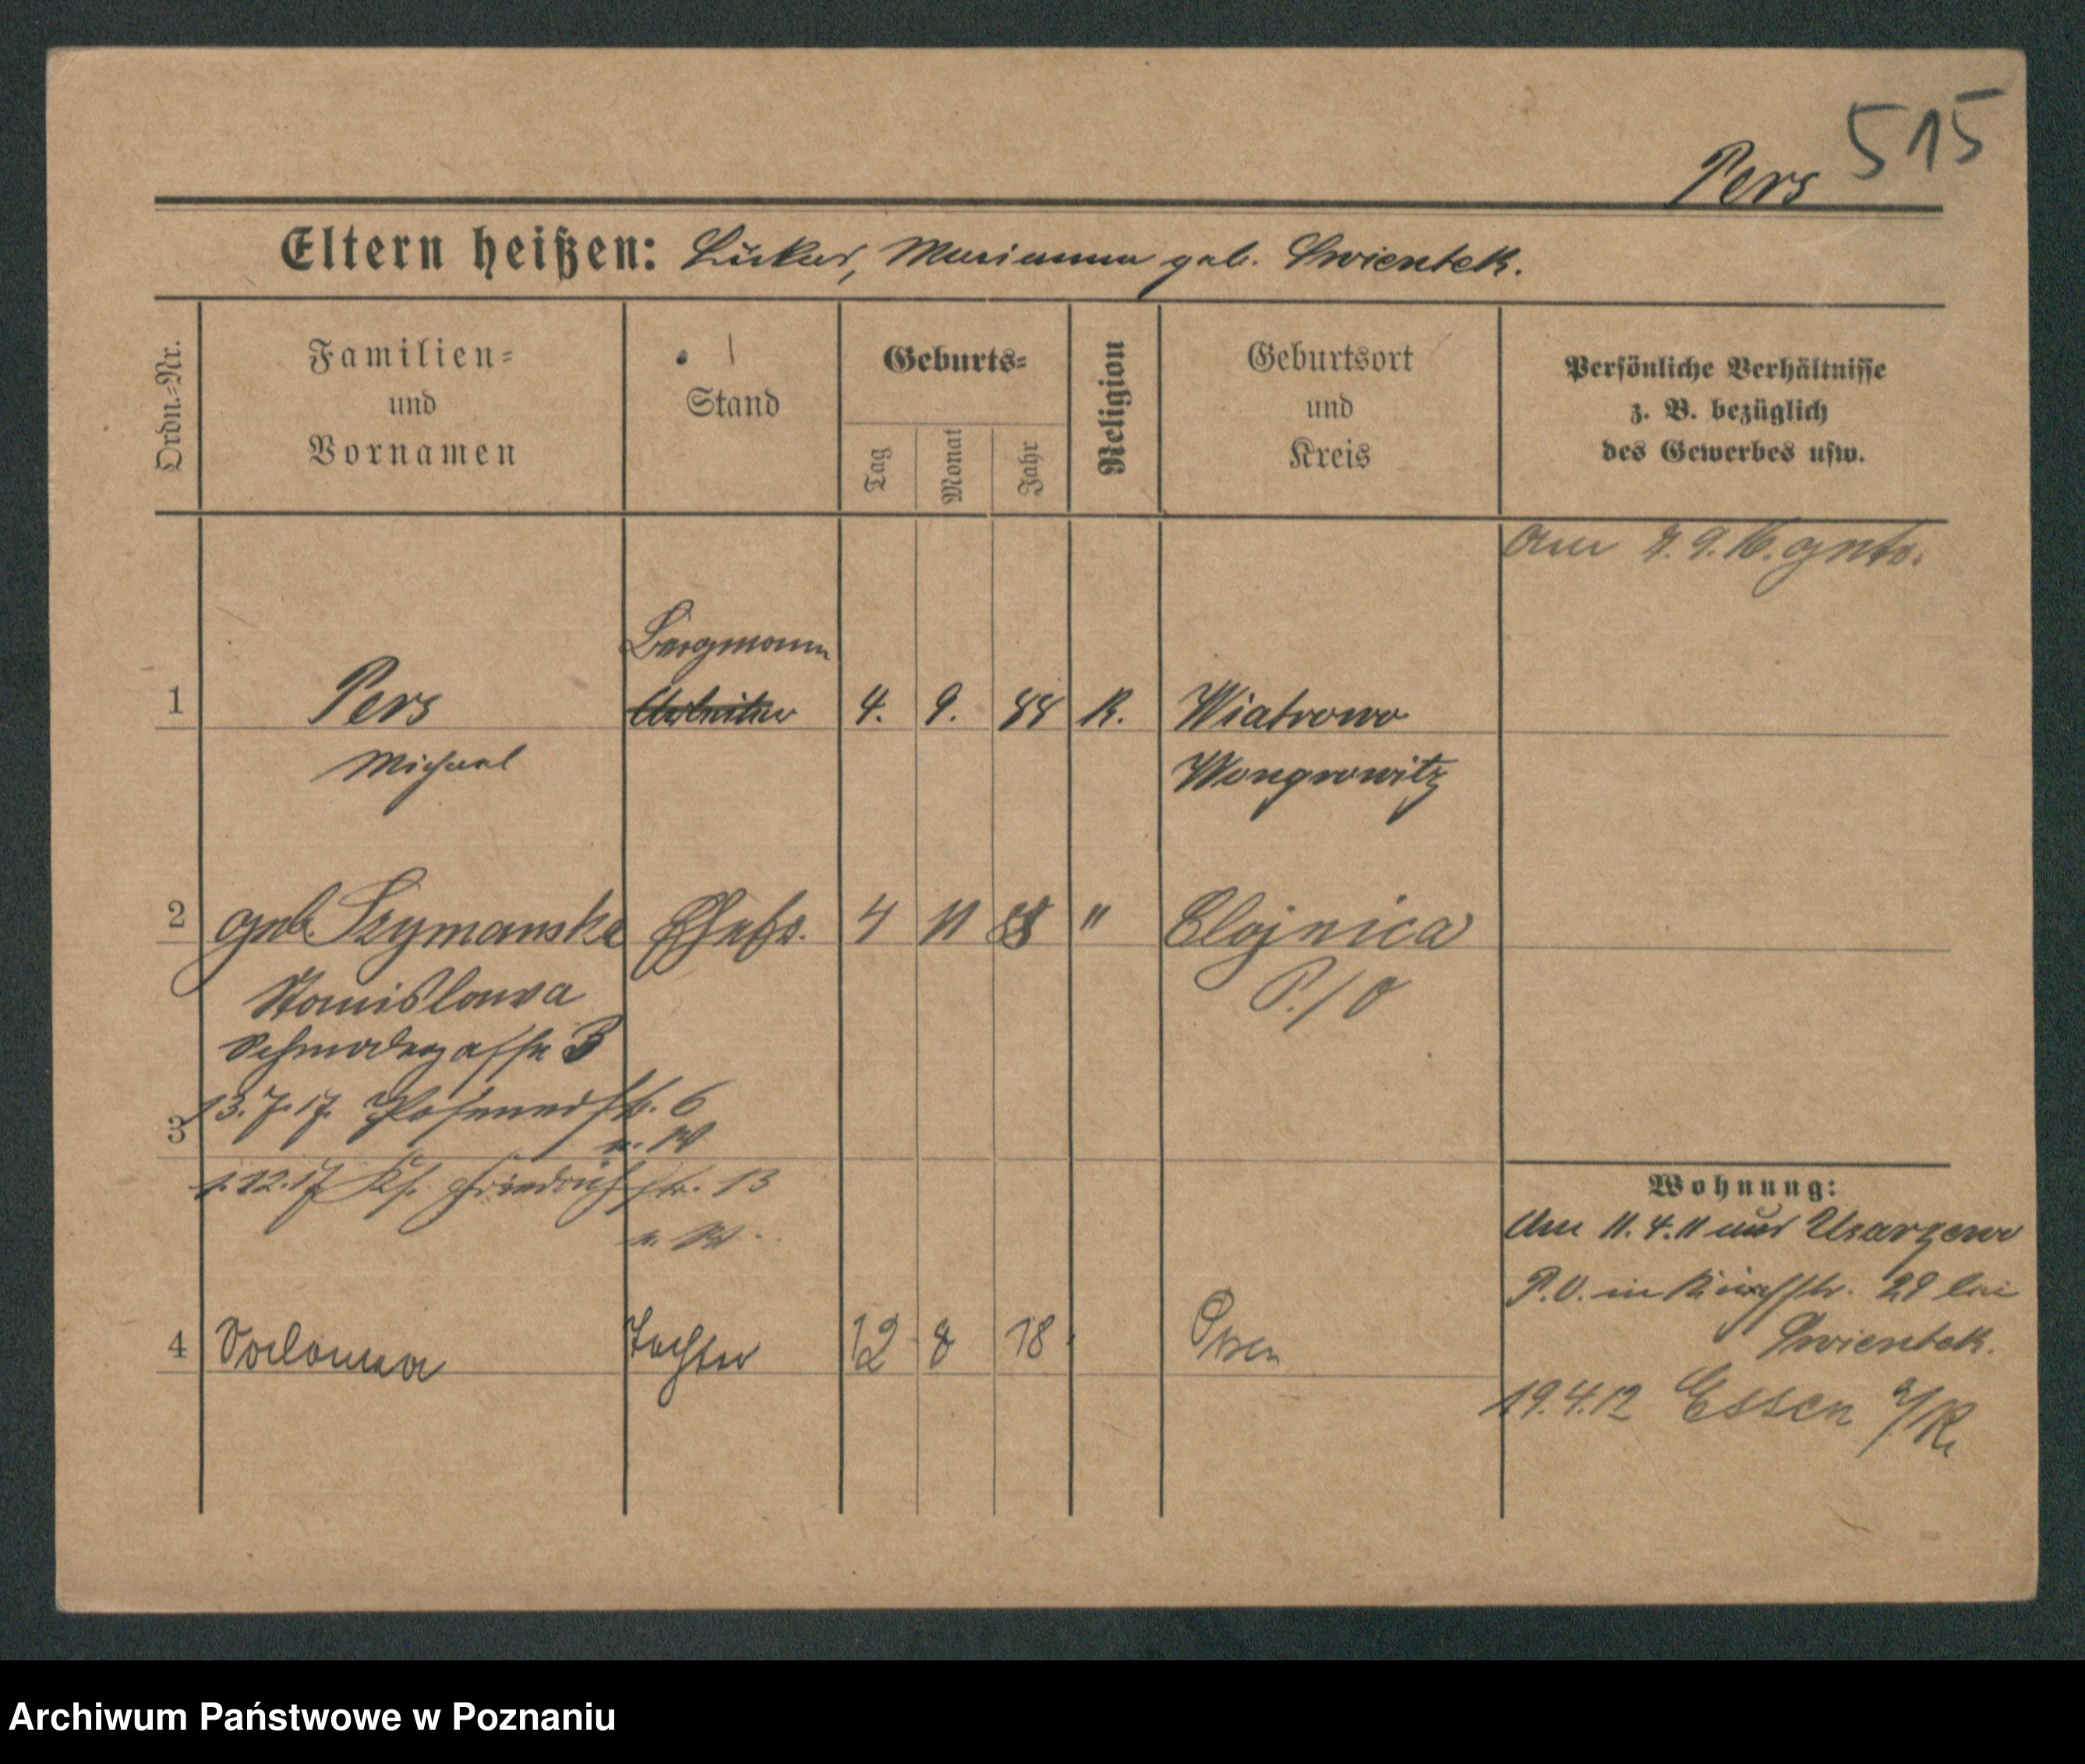 515
Pers
Eltern heißen: Lukas, Marianna geb. Swientek.
Ordn.=Nr.
Familien=
und
Vornamen
Stand
Geburts=
Tag
Monat
Jahr
Religion
Geburtsort
und
Kreis
Persönliche Verhältnisse
z. B. bezüglich
des Gewerbes usw.
Am 9. 16.
Bergmann
1 Pers Arbeiter 4. 9. 88 K. Wiatrowo
Michael Wongrowitz
2 geb. Szymanska Ehefr. 4 11 88 " Chojnica
Stanislawa P./O
3
13. 7. 17. Posenerstr. 6
1. 12. 17 Friedrichstr. 13
Wohnung:
Am 11. 4. 11 aus Uzarzewo
P.O. in 29 bei
Swientek.
4 Tochter 12 8 18 Posen
19. 4. 12 Essen a/R.
Archiwum Państwowe w Poznaniu